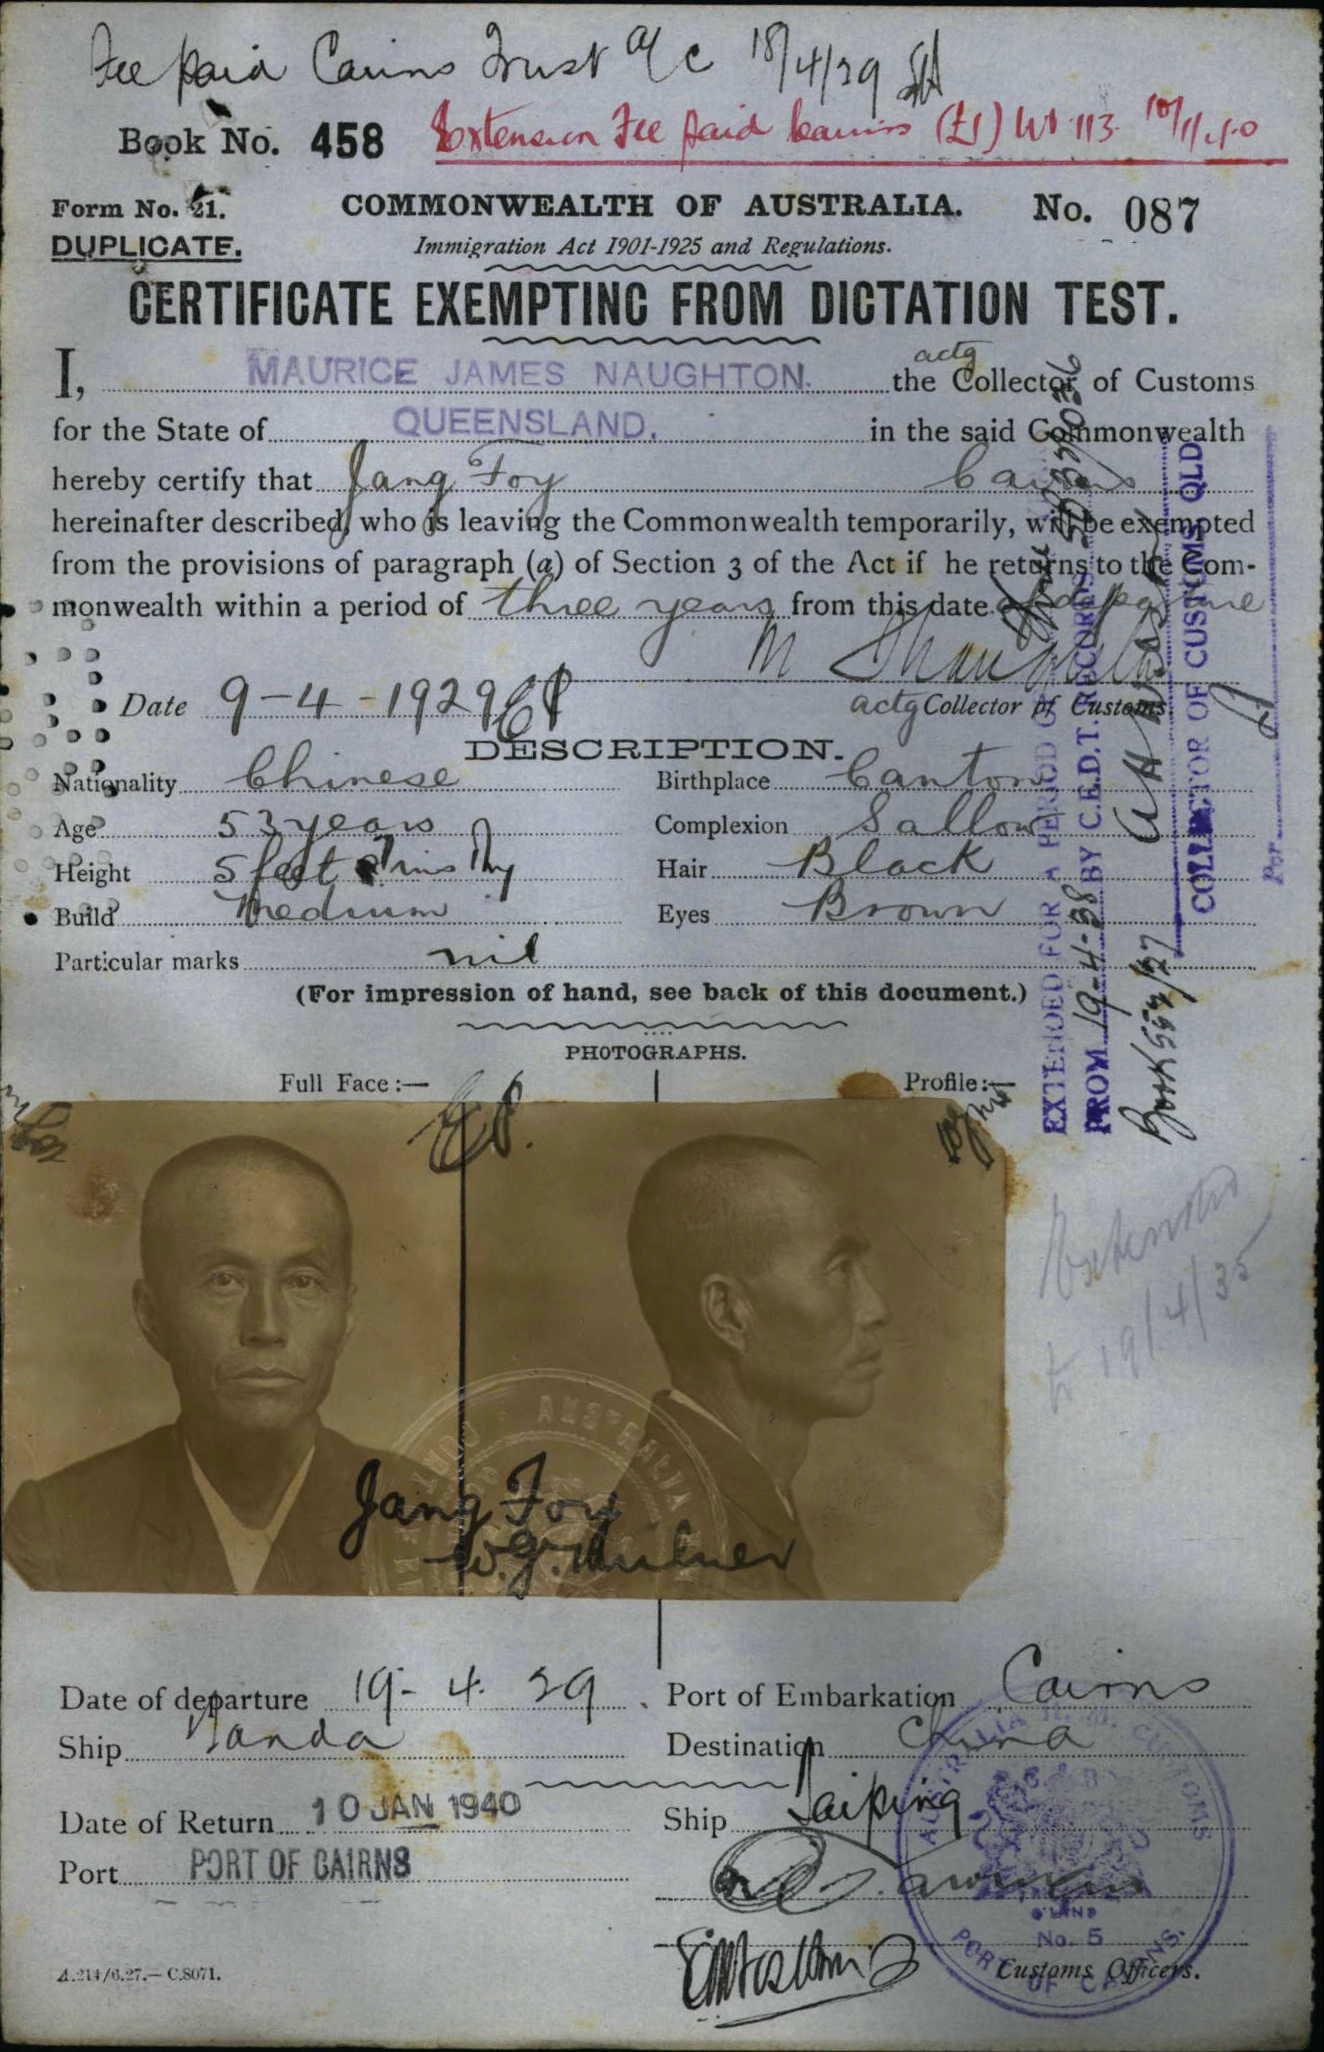 Fee paid Cairns Trust a/c 18/4/29
Book No. 458 Extension Fee paid Cairns (£1)
Form No. 21. COMMONWEALTH OF AUSTRALIA. No. 087
DUPLICATE. Immigration Act 1901-1925 and Regulations.
CERTIFICATE EXEMPTING FROM DICTATION TEST.
actg
I, MAURICE JAMES NAUGHTON. the Collector of Customs
for the State of QUEENSLAND. in the said Commonwealth
hereby certify that Jang Foy Cairns
hereinafter described, who is leaving the Commonwealth temporarily, will be exempted
from the provisions of paragraph (a) of Section 3 of the Act if he returns to the Com-
monwealth within a period of three years from this date of departure
Date 9-4-1929 actg Collector of Customs.
DESCRIPTION.
Nationality Chinese Birthplace Canton
Age 53 years Complexion Sallow
Height 5 feet 7 ins Hair Black
Build Medium Eyes Brown
Particular marks nil
(For impression of hand, see back of this document.)
PHOTOGRAPHS.
Full Face:— Profile:—
EXTENDED FOR A PERIOD OF
FROM 19-4-38 BY C.E.D.T. RECORDS
COLLECTOR OF CUSTOMS QLD
Per
Extension
to 19/4/35
Jang Foy
W.J. Milner
Date of departure 19-4-29. Port of Embarkation Cairns
Ship Tanda Destination China
Date of Return 10 JAN 1940 Ship Taiping
Port PORT OF CAIRNS
AUSTRALIA H.M. CUSTOMS
Q'LAND
No. 5
PORT OF CAIRNS.
Customs Officers.
A.214/6.27.—C.8071.